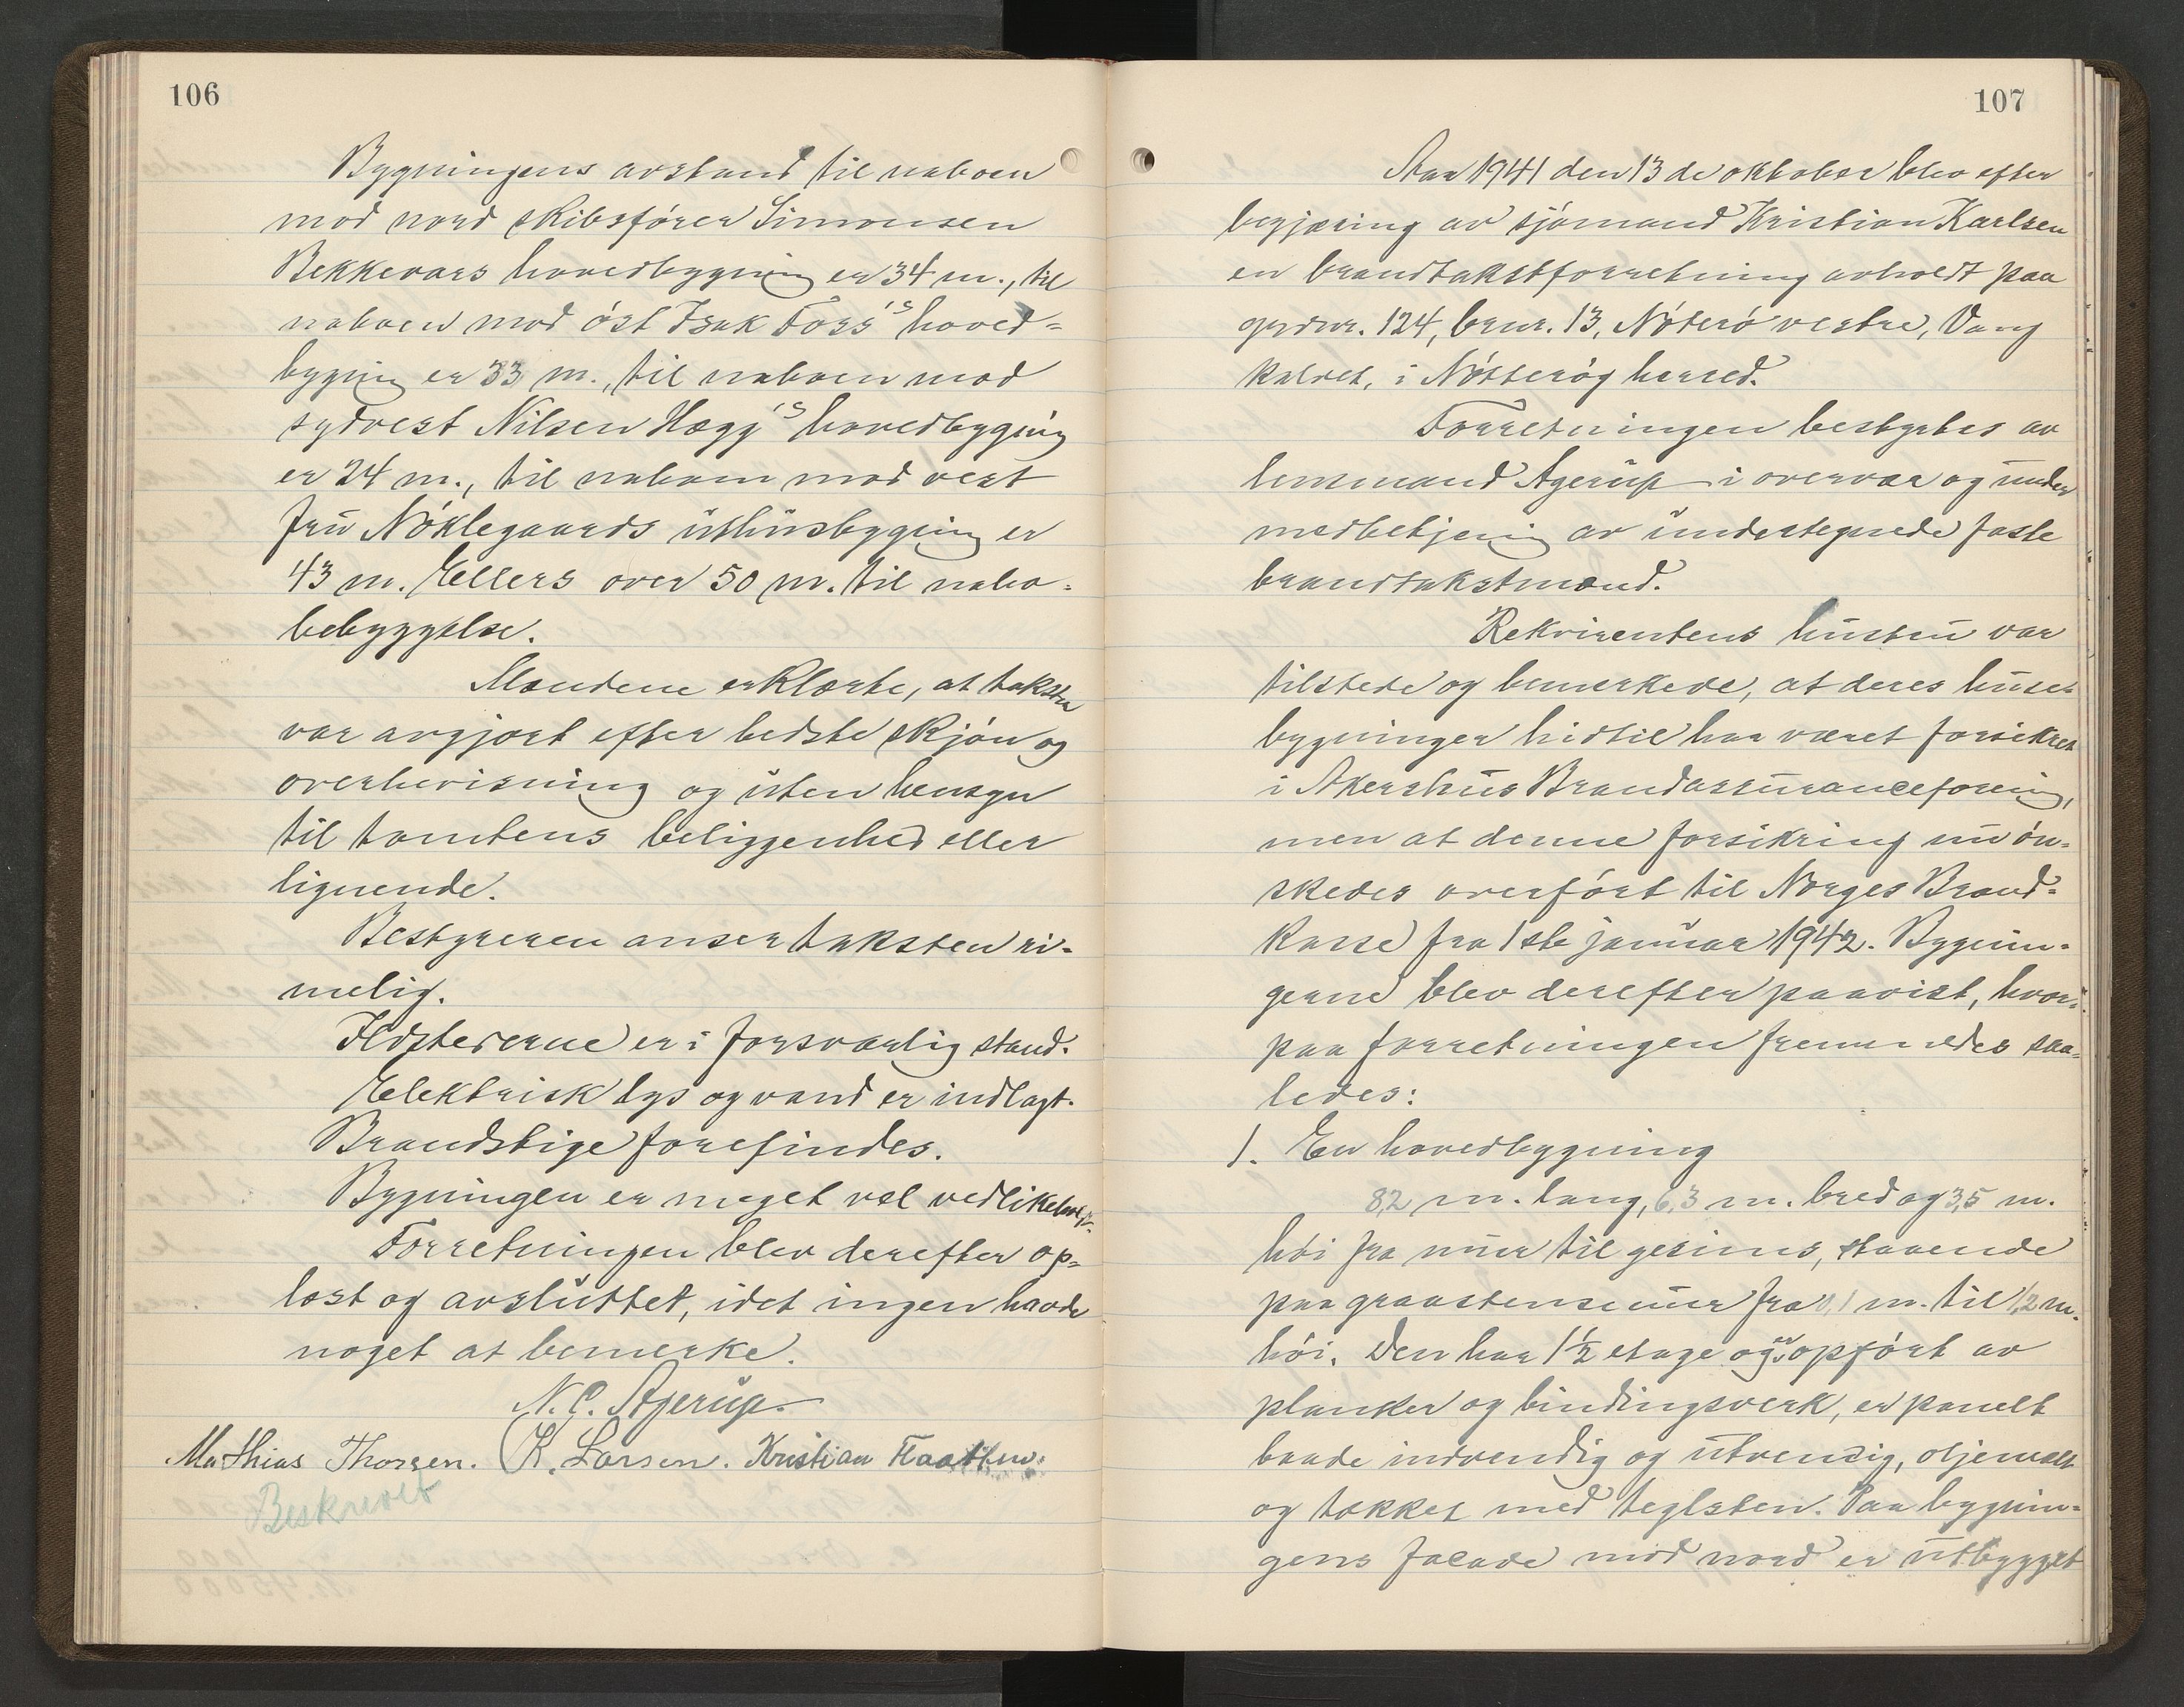 106
Bygningens avstand til naboen
mod nord skibsfører Simonsen
Bekkevars hovedbygning er 34 m., til
naboen mod øst Isak Foss's hoved-
bygning er 33 m., til naboen mod
sydvest Nilsen Hægg's hovedbygning
er 24 m., til naboen mod vest
fru Nøklegaards uthusbygning er
43 m. Ellers over 50 m. til nabo-
bebyggelse.
Mændene erklærte, at taksten
var avgjort efter bedste skjøn og
overbevisning og uten hensyn
til tomtens beliggenhed eller
lignende.
Bestyreren anser taksten ri-
melig.
Ildstederne er i forsvarlig stand.
Elektrisk lys og vand er indlagt.
Brandstige forefindes.
Bygningen er meget vel vedlikeholdt.
Forretningen blev derefter op-
læst og avsluttet, idet ingen havde
noget at bemerke.
N. C. Agerup
Mathias Thorsen. K. Larsen. Kristian Flaatten.
Beskrevet
107
Aar 1941 den 13de oktober blev efter
begjæring av sjømand Kristian Karlsen
en brandtakstforretning avholdt paa
grdnr. 124, brnr. 13, Nøterø vestre, Vang
kaldet, i Nøtterøy herred.
Forretningen bestyrtes av
lensmand Agerup i overvær og under
medbetjening av undertegnede faste
brandtakstmænd.
Rekvirentens hustru var
tilstede og bemerkede, at deres huse-
bygninger hidtil har været forsikret
i Akershus Brandassuranceforening,
men at denne forsikring nu øn-
skedes overført til Norges Brand-
kasse fra 1ste januar 1942. Bygnin-
gerne blev derefter paavist, hvor-
paa forretningen fremmedes saa-
ledes:
1. En hovedbygning
8,2 m. lang, 6,3 m. bred og 3,5 m.
høi fra mur til gesims, staaende
paa graastensmur fra 0,1 m. til 1,2 m.
høi. Den har 1½ etage og er opført av
planker og bindingsverk, er panelt
baade indvendig og utvendig, oljemalt
og tækket med teglsten. Paa bygnin-
gens facade mod nord er utbygget